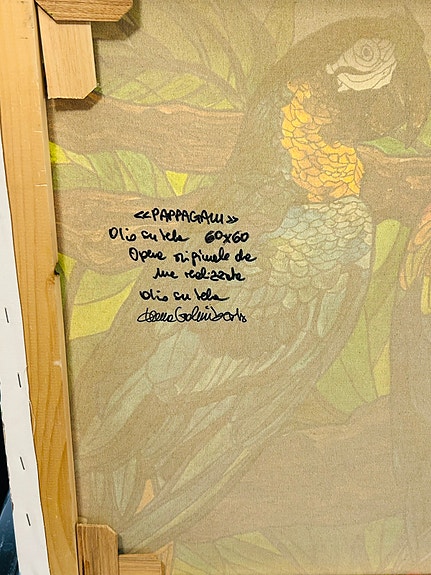 «PAPPAGALLI»
Olio su tela 60x60
Opera originale da
me realizzata
olio su tela